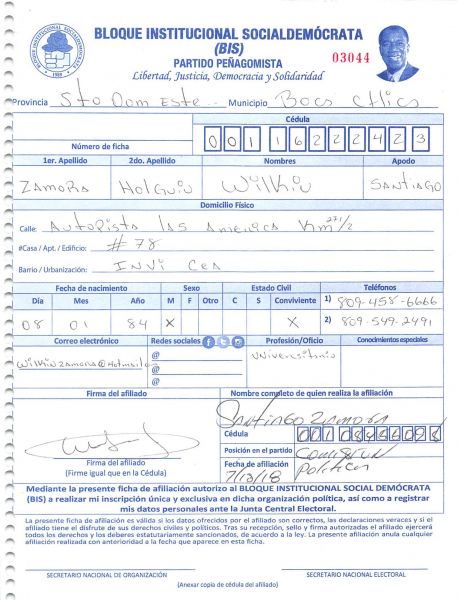 BLOQUE INSTITUCIONAL SOCIALDEMÓCRATA
(BIS)
PARTIDO PEÑAGOMISTA
03044
Libertad, Justicia, Democracia y Solidaridad
Provincia Sto Dom Este Municipio Boca Chica
Cédula
Número de ficha 001 16222423
1er. Apellido 2do. Apellido Nombres Apodo
ZAMORA Holguin Wilkin SANTIAGO
Domicilio Físico
Calle: Autopista las America Km 27 1/2
#Casa / Apt. / Edificio: # 78
Barrio / Urbanización: INVI Cea
Fecha de nacimiento Sexo Estado Civil Teléfonos
Día Mes Año M F Otro C S Conviviente 1) 809-458-6666
08 01 84 X X 2) 809-549-2491
Correo electrónico Redes sociales Profesión/Oficio Conocimientos especiales
@ Universitario
@
@
Firma del afiliado Nombre completo de quien realiza la afiliación
SANTIAGO ZAMORA
Cédula
Posición en el partido
Firma del afiliado
(Firme igual que en la Cédula)
Fecha de afiliación Politica
Mediante la presente ficha de afiliación autorizo al BLOQUE INSTITUCIONAL SOCIAL DEMÓCRATA
(BIS) a realizar mi inscripción única y exclusiva en dicha organización política, así como a registrar
mis datos personales ante la Junta Central Electoral.
La presente ficha de afiliación es válida si los datos ofrecidos por el afiliado son correctos, las declaraciones veraces y si el
afiliado tiene el disfrute de sus derechos civiles y políticos. Tras su recepción, sello y firma autorizadas el afiliado ejercerá
todos los derechos y los deberes estatutariamente sancionados, de acuerdo a la ley. La presente afiliación anula cualquier
afiliación realizada con anterioridad a la fecha que aparece en esta ficha.
SECRETARIO NACIONAL DE ORGANIZACIÓN SECRETARIO NACIONAL ELECTORAL
(Anexar copia de cédula del afiliado)